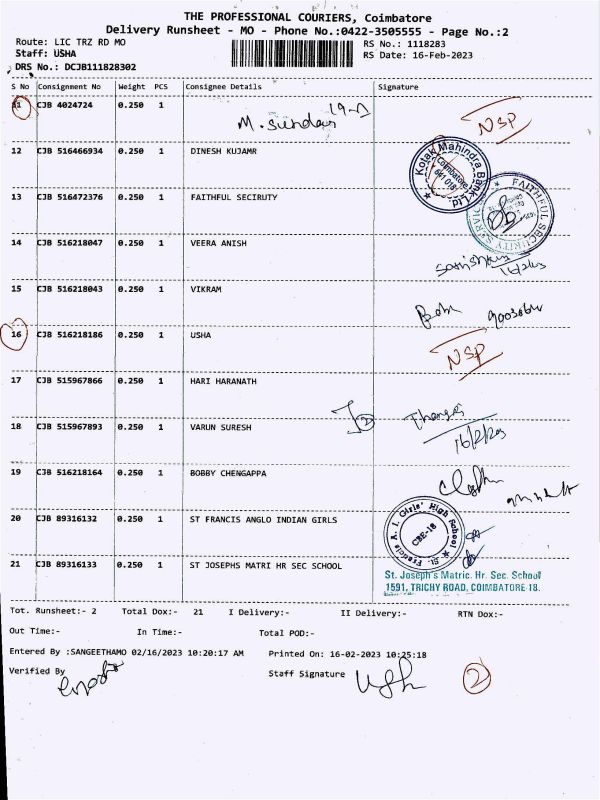 THE PROFESSIONAL COURIERS, Coimbatore
Delivery Runsheet - MO - Phone No.:0422-3505555 - Page No.:2
Route: LIC TRZ RD MO
RS No.: 1118283
Staff: USHA
RS Date: 16-Feb-2023
DRS No.: DCJB111828302
S No Consignment No Weight PCS Consignee Details Signature
11 CJB 4024724 0.250 1 M. Sundar NSP
12 CJB 516466934 0.250 1 DINESH KUJAMR
Kotak Mahindra Bank Ltd.
Coimbatore
641 018
13 CJB 516472376 0.250 1 FAITHFUL SECIRUTY
FAITHFUL SECURITY SERVIC
14 CJB 516218047 0.250 1 VEERA ANISH
15 CJB 516218043 0.250 1 VIKRAM
16 CJB 516218186 0.250 1 USHA NSP
17 CJB 515967866 0.250 1 HARI HARANATH
18 CJB 515967893 0.250 1 VARUN SURESH
16/2/23
19 CJB 516218164 0.250 1 BOBBY CHENGAPPA
20 CJB 89316132 0.250 1 ST FRANCIS ANGLO INDIAN GIRLS
St. Francis A. I. Girls' High School
CBE-18
21 CJB 89316133 0.250 1 ST JOSEPHS MATRI HR SEC SCHOOL
St. Joseph's Matric. Hr. Sec. School
1591, TRICHY ROAD, COIMBATORE-18.
Tot. Runsheet:- 2 Total Dox:- 21 I Delivery:- II Delivery:- RTN Dox:-
Out Time:- In Time:- Total POD:-
Entered By :SANGEETHAMO 02/16/2023 10:20:17 AM Printed On: 16-02-2023 10:25:18
Verified By Staff Signature 2